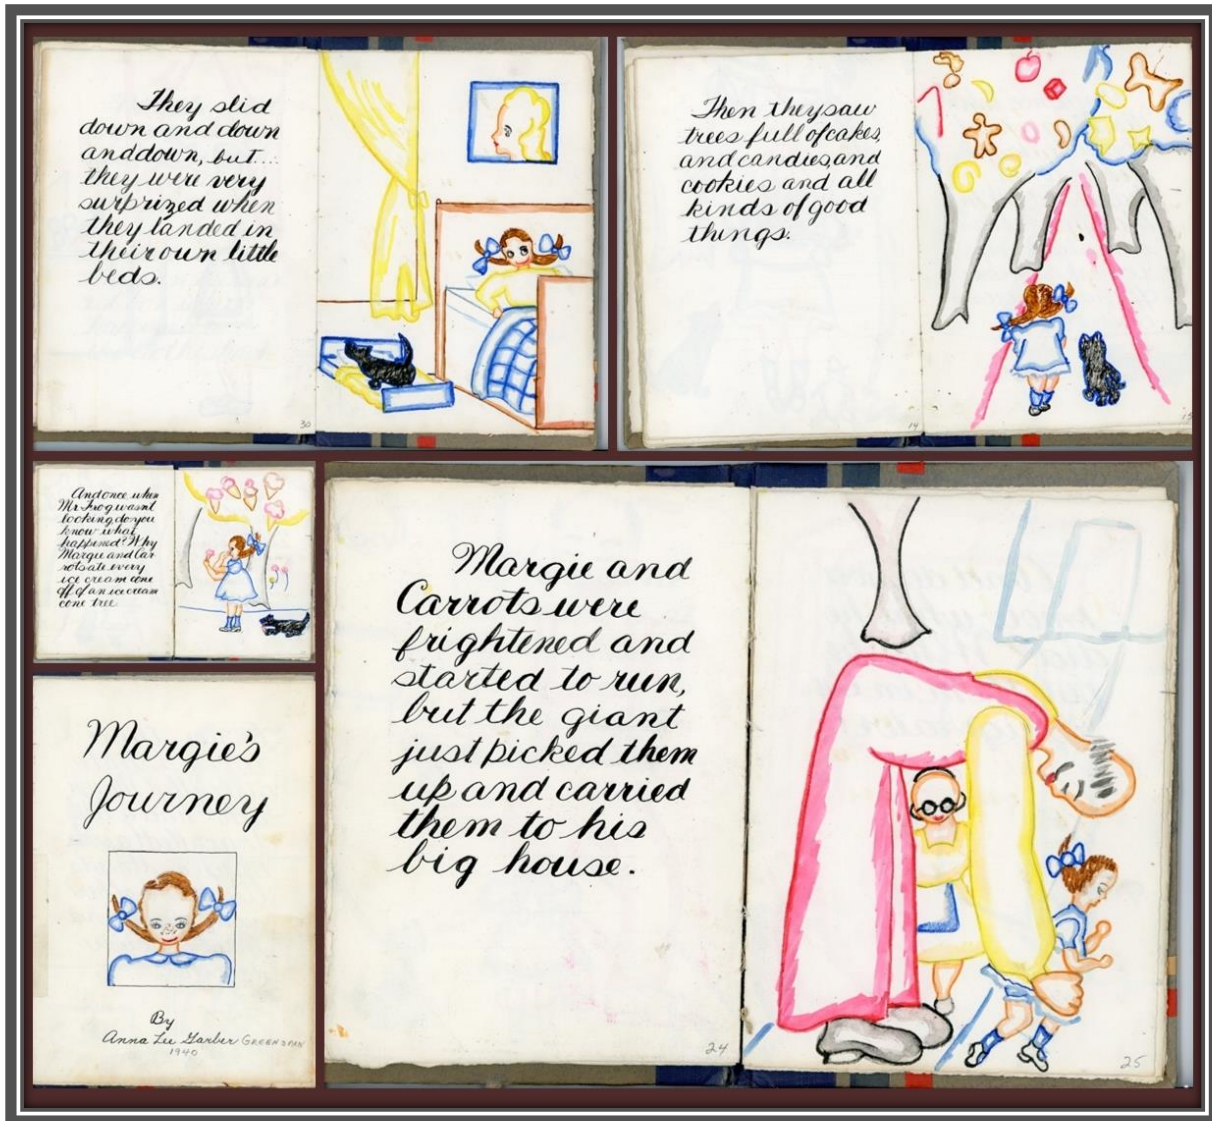 They slid
down and down
and down, but...
they were very
surprized when
they landed in
their own little
beds.
30
Then they saw
trees full of cakes,
and candies, and
cookies and all
kinds of good
things.
14
15
And once when
Mr. Frog wasn't
looking do you
know what
happened? Why
Margie and Car-
rots ate every
ice cream cone
off of an ice cream
cone tree
Margie's
Journey
By
Anna Lee Garber GREENSPAN
1940
Margie and
Carrots were
frightened and
started to run,
but the giant
just picked them
up and carried
them to his
big house.
24
25